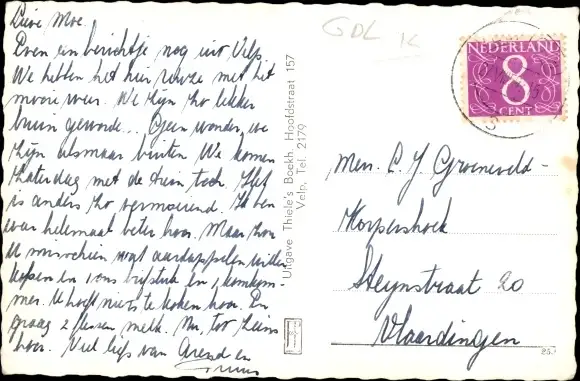 Lieve Moe.
Even een berichtje nog uit Velp.
We hebben het hier reuze met het
mooie weer. We zijn zo lekker
bruin geworde... Geen wonder, we
zijn alsmaar buiten. We komen
Zaterdag met de trein toch. Het
is anders zo vermoeiend. Ik ben
weer helemaal beter hoor. Maar zou
U misschien wat aardappelen willen
en 1 ons biefstuk en 1 komkom-
mer. U hoeft niets te koken hoor. En
graag 2 flessen melk. Nu, tot ziens
hoor. Veel liefs van Arend en
Truus
Uitgave Thiele's Boekh. Hoofdstraat 157
Velp, Tel. 2179
GDL K
NEDERLAND
8
CENT
Mevr. C. J. Groeneveld-
Korpershoek
Steynstraat 20
Vlaardingen